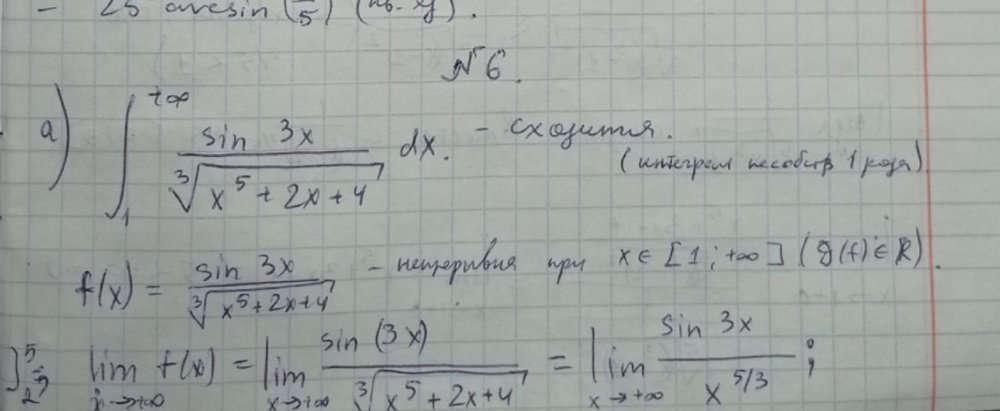 - 25 arcsin (x/5) (кв. ед).
№6.
a) ∫₁^{+∞} sin 3x / ∛(x⁵ + 2x + 4) dx. - сходится.
(интеграл несобств 1 рода)
f(x) = sin 3x / ∛(x⁵ + 2x + 4) - непрерывная при x ∈ [1; +∞] (D(f) ∈ R).
lim_{x→+∞} f(x) = lim_{x→+∞} sin (3x) / ∛(x⁵ + 2x + 4) = lim_{x→+∞} sin 3x / x^{5/3} ;